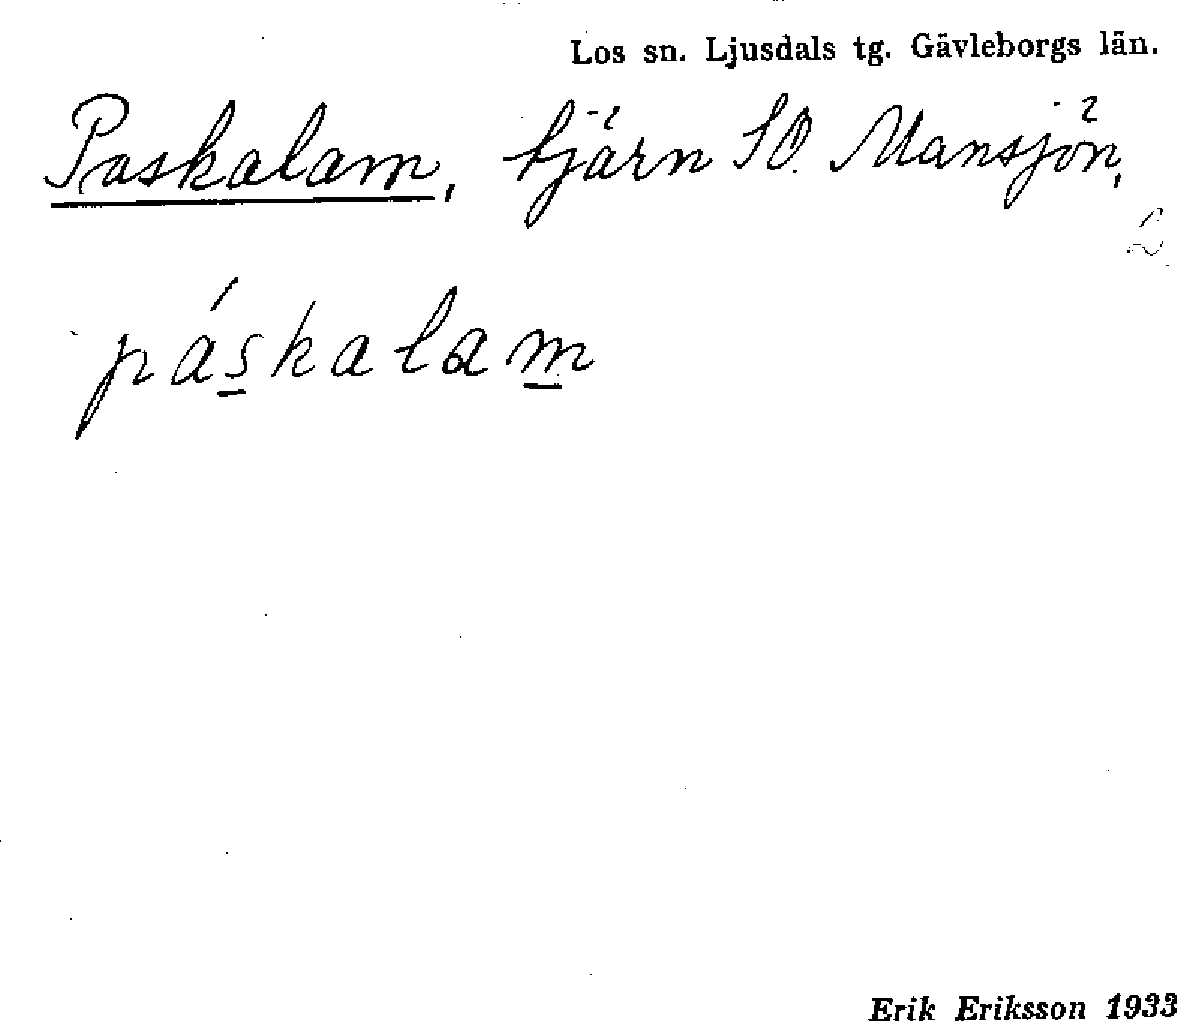 Los sn. Ljusdals tg. Gävleborgs län.
Paskalam, tjärn SO. Mansjön,
páskalam
Erik Eriksson 1933